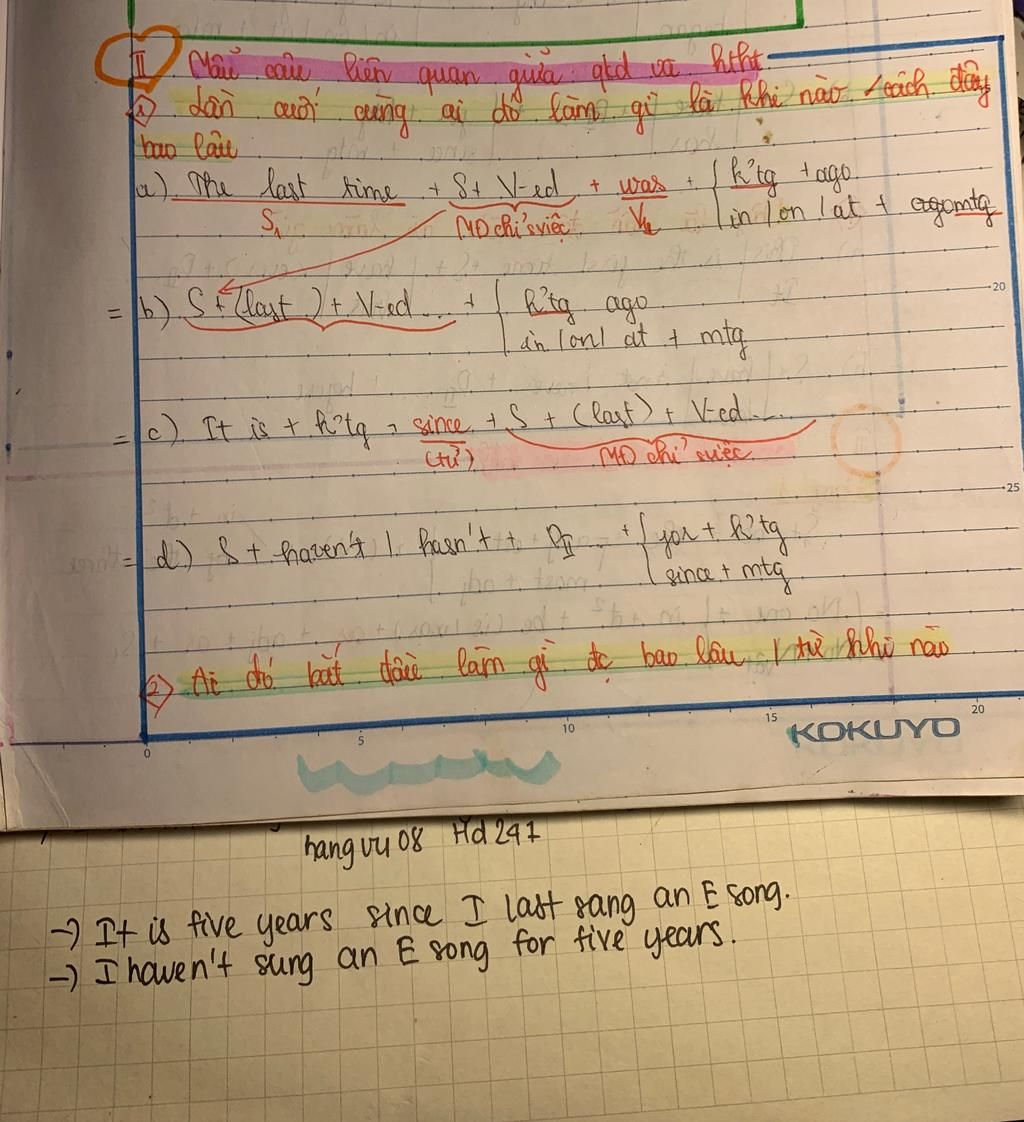 II Mẫu câu liên quan giữa qtđ và htht
1 Lần cuối cùng ai đó làm gì là khi nào / cách đây
bao lâu
a) The last time + S + V-ed + was + k²tg + ago
in / on / at + mtg
S₁ MĐ chỉ sviệc
= b) S + (last) + V-ed ... + k²tg ago
in / on / at + mtg
20
= c) It is + k²tg + since + S + (last) + V-ed ...
(từ) MĐ chỉ sviệc
25
= d) S + haven't / hasn't + PII ... + for + k²tg
since + mtg
2 Ai đó bắt đầu làm gì đc bao lâu / từ khi nào
0 5 10 15 20
KOKUYO
hangvu08 Hd241
→ It is five years since I last sang an E song.
→ I haven't sung an E song for five years.